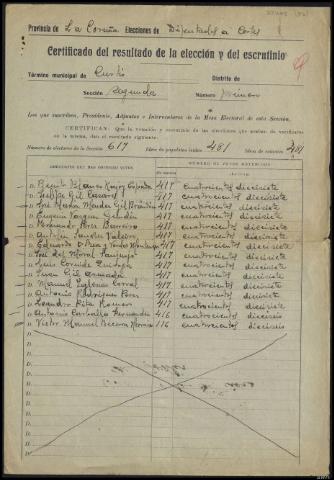 Provincia de La Coruña Elecciones de Diputados a Cortes
Certificado del resultado de la elección y del escrutinio
Término municipal de Curtis Distrito de
Sección segunda Número primero
Los que suscriben, Presidente, Adjuntos e Interventores de la Mesa Electoral de esta Sección.
CERTIFICAN: Que la votación y escrutinio de las elecciones que acaban de verificarse
en la misma, dan el resultado siguiente:
Número de electores de la Sección 617 Idem de papeletas leídas 481 Idem de votantes 481
NÚMERO DE VOTOS OBTENIDOS
D. Benito Blanco Rajoy Espada 417 cuatrocientos diecisiete
D. Felipe Gil Casares 417 cuatrocientos diecisiete
D. José María Méndez Gil Brandón 417 cuatrocientos diecisiete
D. Eugenio Vazquez Gundín 417 cuatrocientos diecisiete
D. Fernando Perez Barreiro 417 cuatrocientos diecisiete
D. 417 cuatrocientos diecisiete
D. Eduardo Ozores 417 cuatrocientos diecisiete
D. José del Moral 417 cuatrocientos diecisiete
D. Luis Cornide Quiroga 417 cuatrocientos diecisiete
D. Juan Gil Armada 417 cuatrocientos diecisiete
D. Manuel Corral 417 cuatrocientos diecisiete
D. Antonio Rodriguez Perez 417 cuatrocientos diecisiete
D. Leandro Pita Romero 417 cuatrocientos diecisiete
D. Antonio Carballo Fernandez 416 cuatrocientos dieciséis
D. Victor Manuel Becerra Herraiz 116 dieciséis
D.
D.
D.
D.
D.
D.
D.
D.
D.